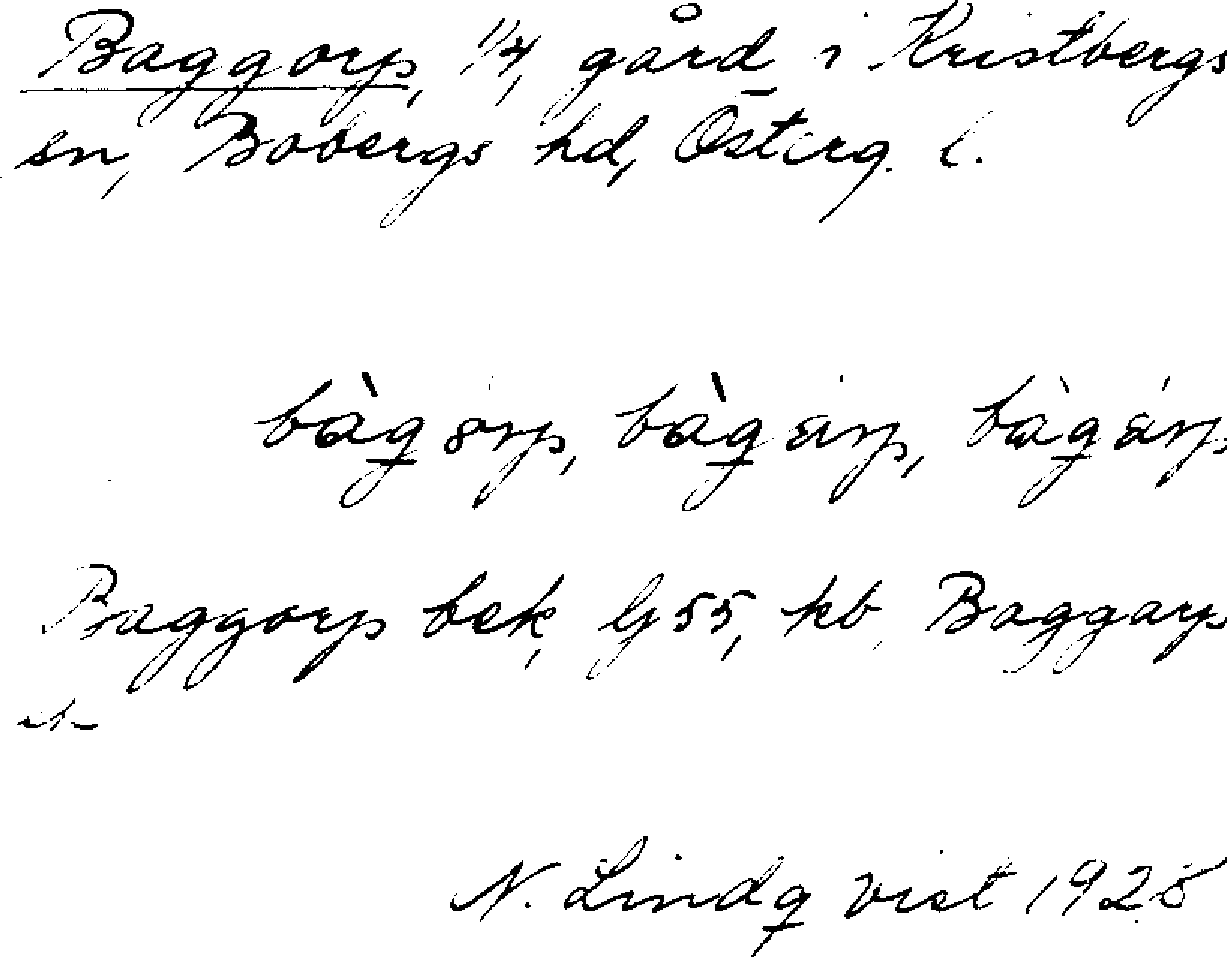 Baggorp, 1/4, gård i Kristbergs
sn, Bobergs hd, Österg. l.
bàgårp, bàgarp
Baggorp bek, Gj 55, kb, Baggarp
N. Lindqvist 1928